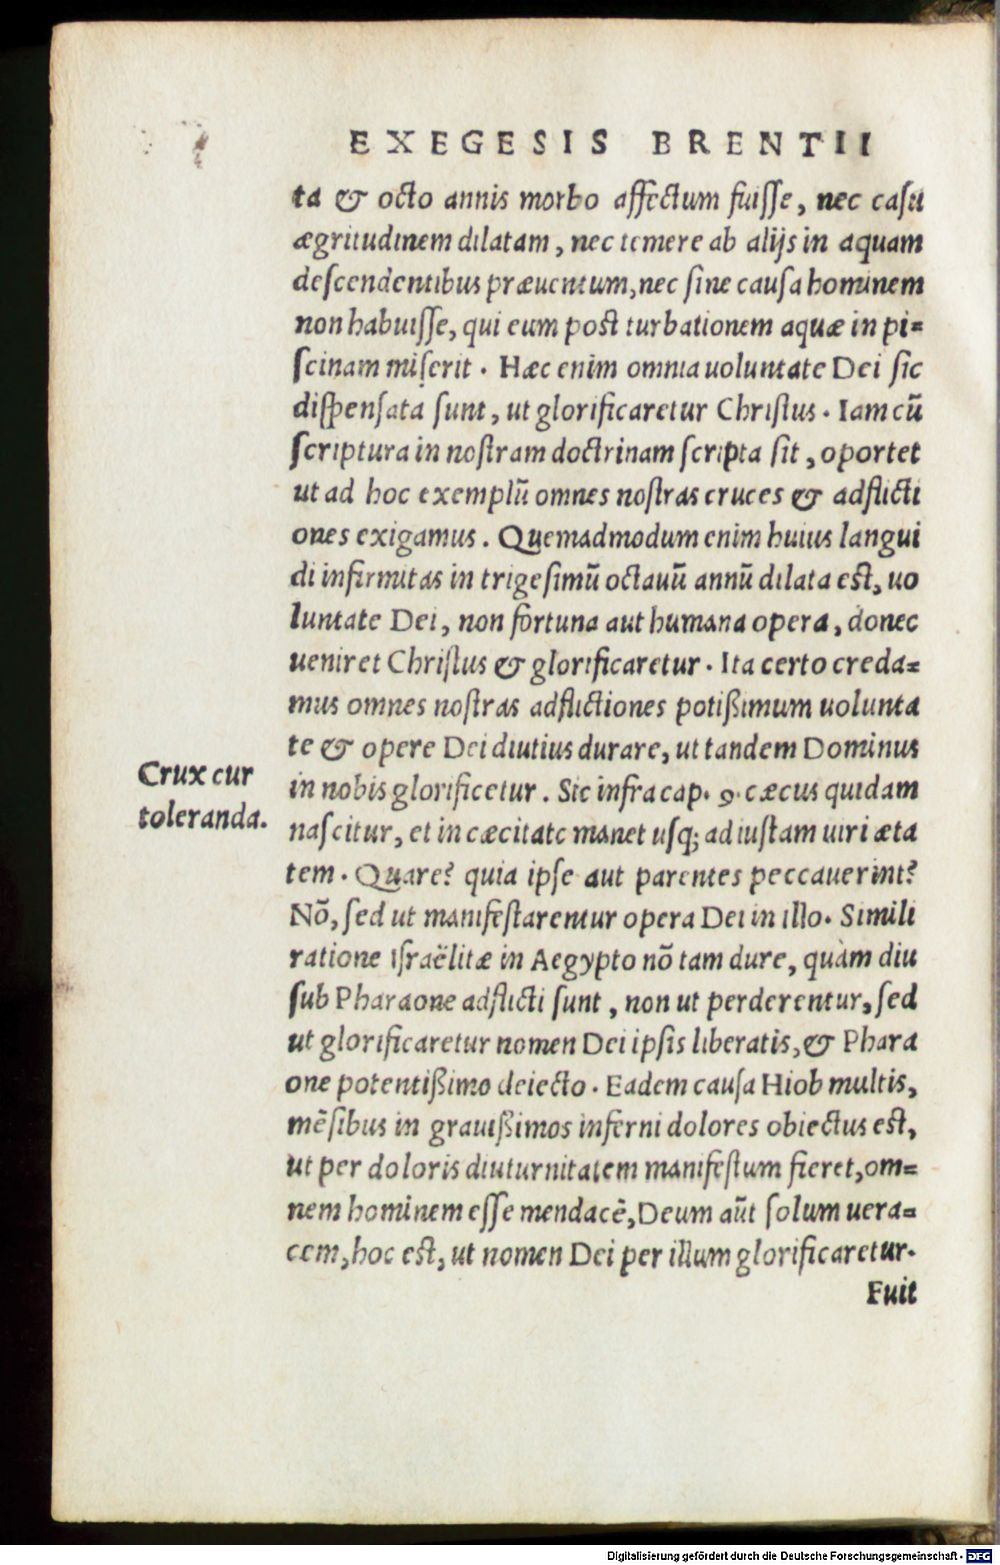 EXEGESIS BRENTII
ta & octo annis morbo affectum fuisse, nec casu
ægritudinem dilatam, nec temere ab alijs in aquam
descendentibus præuentum, nec sine causa hominem
non habuisse, qui eum post turbationem aquæ in pi=
scinam miserit. Hæc enim omnia uoluntate Dei sic
dispensata sunt, ut glorificaretur Christus. Iam cũ
scriptura in nostram doctrinam scripta sit, oportet
ut ad hoc exemplũ omnes nostras cruces & adflicti
ones exigamus. Quemadmodum enim huius langui
di infirmitas in trigesimũ octauũ annũ dilata est, uo
luntate Dei, non fortuna aut humana opera, donec
ueniret Christus & glorificaretur. Ita certo creda=
mus omnes nostras adflictiones potißimum uolunta
te & opere Dei diutius durare, ut tandem Dominus
Crux cur
toleranda.
in nobis glorificetur. Sic infra cap. 9. cæcus quidam
nascitur, et in cæcitate manet usq; ad iustam uiri æta
tem. Quare? quia ipse aut parentes peccauerint?
Nõ, sed ut manifestarentur opera Dei in illo. Simili
ratione Israëlitæ in Aegypto nõ tam dure, quàm diu
sub Pharaone adflicti sunt, non ut perderentur, sed
ut glorificaretur nomen Dei ipsis liberatis, & Phara
one potentißimo deiecto. Eadem causa Hiob multis,
mẽsibus in grauißimos inferni dolores obiectus est,
ut per doloris diuturnitatem manifestum fieret, om=
nem hominem esse mendacẽ, Deum aũt solum uera=
cem, hoc est, ut nomen Dei per illum glorificaretur.
Fuit
Digitalisierung gefördert durch die Deutsche Forschungsgemeinschaft - DFG